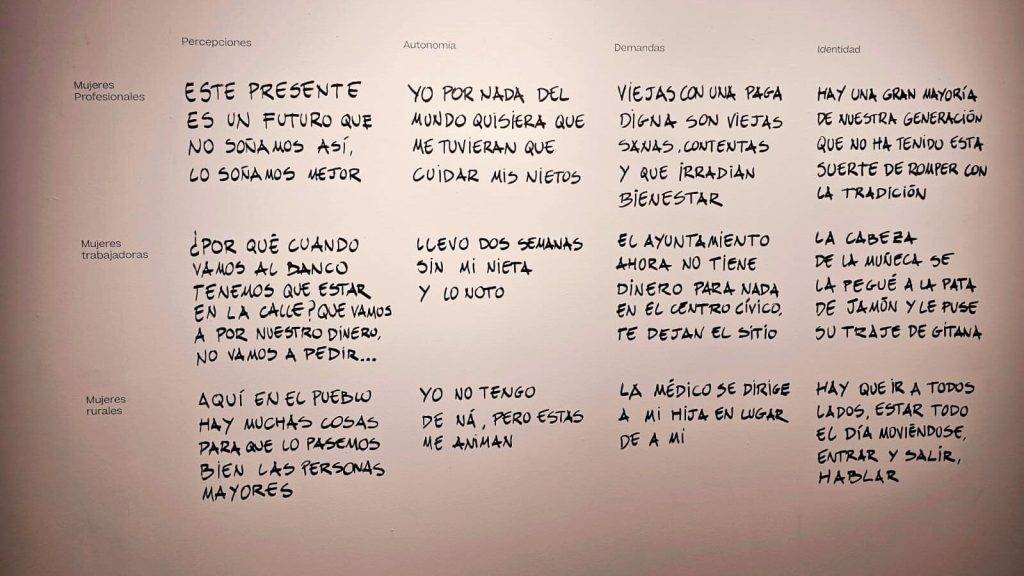 Percepciones
Autonomía
Demandas
Identidad
Mujeres
Profesionales
ESTE PRESENTE
ES UN FUTURO QUE
NO SOÑAMOS ASÍ,
LO SOÑAMOS MEJOR
YO POR NADA DEL
MUNDO QUISIERA QUE
ME TUVIERAN QUE
CUIDAR MIS NIETOS
VIEJAS CON UNA PAGA
DIGNA SON VIEJAS
SANAS, CONTENTAS
Y QUE IRRADIAN
BIENESTAR
HAY UNA GRAN MAYORÍA
DE NUESTRA GENERACIÓN
QUE NO HA TENIDO ESTA
SUERTE DE ROMPER CON
LA TRADICIÓN
Mujeres
trabajadoras
¿POR QUÉ CUANDO
VAMOS AL BANCO
TENEMOS QUE ESTAR
EN LA CALLE? QUE VAMOS
A POR NUESTRO DINERO,
NO VAMOS A PEDIR...
LLEVO DOS SEMANAS
SIN MI NIETA
Y LO NOTO
EL AYUNTAMIENTO
AHORA NO TIENE
DINERO PARA NADA
EN EL CENTRO CÍVICO,
TE DEJAN EL SITIO
LA CABEZA
DE LA MUÑECA SE
LA PEGUÉ A LA PATA
DE JAMÓN Y LE PUSE
SU TRAJE DE GITANA
Mujeres
rurales
AQUÍ EN EL PUEBLO
HAY MUCHAS COSAS
PARA QUE LO PASEMOS
BIEN LAS PERSONAS
MAYORES
YO NO TENGO
DE NÁ, PERO ESTAS
ME ANIMAN
LA MÉDICO SE DIRIGE
A MI HIJA EN LUGAR
DE A MI
HAY QUE IR A TODOS
LADOS, ESTAR TODO
EL DÍA MOVIÉNDOSE,
ENTRAR Y SALIR,
HABLAR